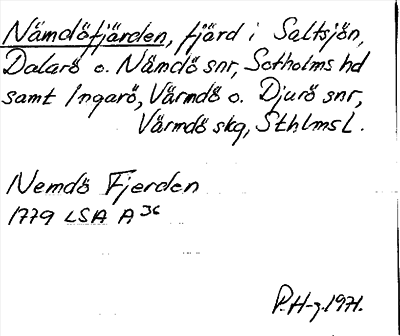 Nämdöfjärden, fjärd i Saltsjön,
Dalarö o. Nämdö snr, Sotholms hd
samt Ingarö, Värmdö o. Djurö snr,
Värmdö skg, Sthlms l.
Nemdö Fjerden
1779 LSA A 36
P.H-g. 1971.